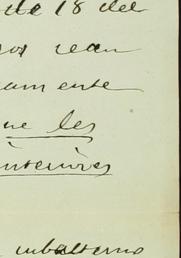 de 18 del
sean
amente
ue les
interiores
subalterno